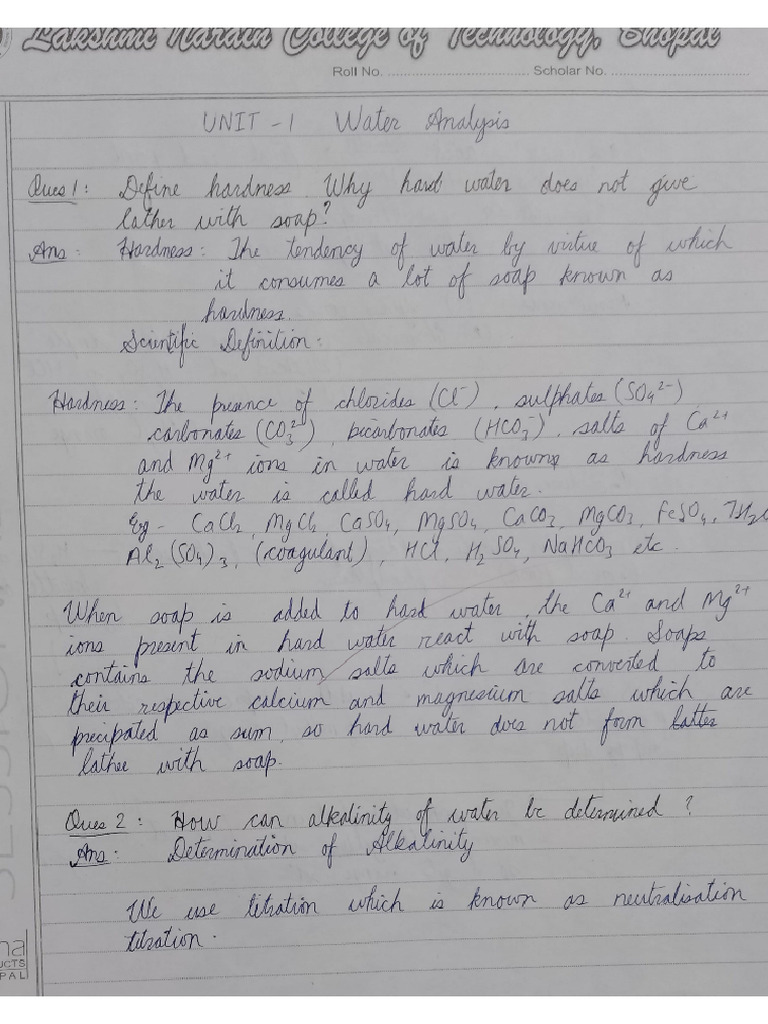 Lakshmi Narain College of Technology, Bhopal
Roll No. .......................... Scholar No. ..........................
UNIT - 1 Water Analysis
Ques 1: Define hardness Why hard water does not give
lather with soap?
Ans: Hardness: The tendency of water by virtue of which
it consumes a lot of soap known as
hardness.
Scientific Definition:
Hardness: The presence of chlorides (Cl⁻), sulphates (SO₄²⁻)
carbonates (CO₃²⁻), bicarbonates (HCO₃⁻), salts of Ca²⁺
and Mg²⁺ ions in water is known as hardness
the water is called hard water.
Eg - CaCl₂, MgCl₂, CaSO₄, MgSO₄, CaCO₃, MgCO₃, FeSO₄.7H₂O
Al₂(SO₄)₃, (coagulant), HCl, H₂SO₄, NaHCO₃ etc.
When soap is added to hard water, the Ca²⁺ and Mg²⁺
ions present in hard water react with soap. Soaps
contains the sodium salts which are converted to
their respective calcium and magnesium salts which are
precipated as sum, so hard water does not form latter
lather with soap.
Ques 2: How can alkalinity of water be determined ?
Ans: Determination of Alkalinity
We use titration which is known as neutralisation
titration.